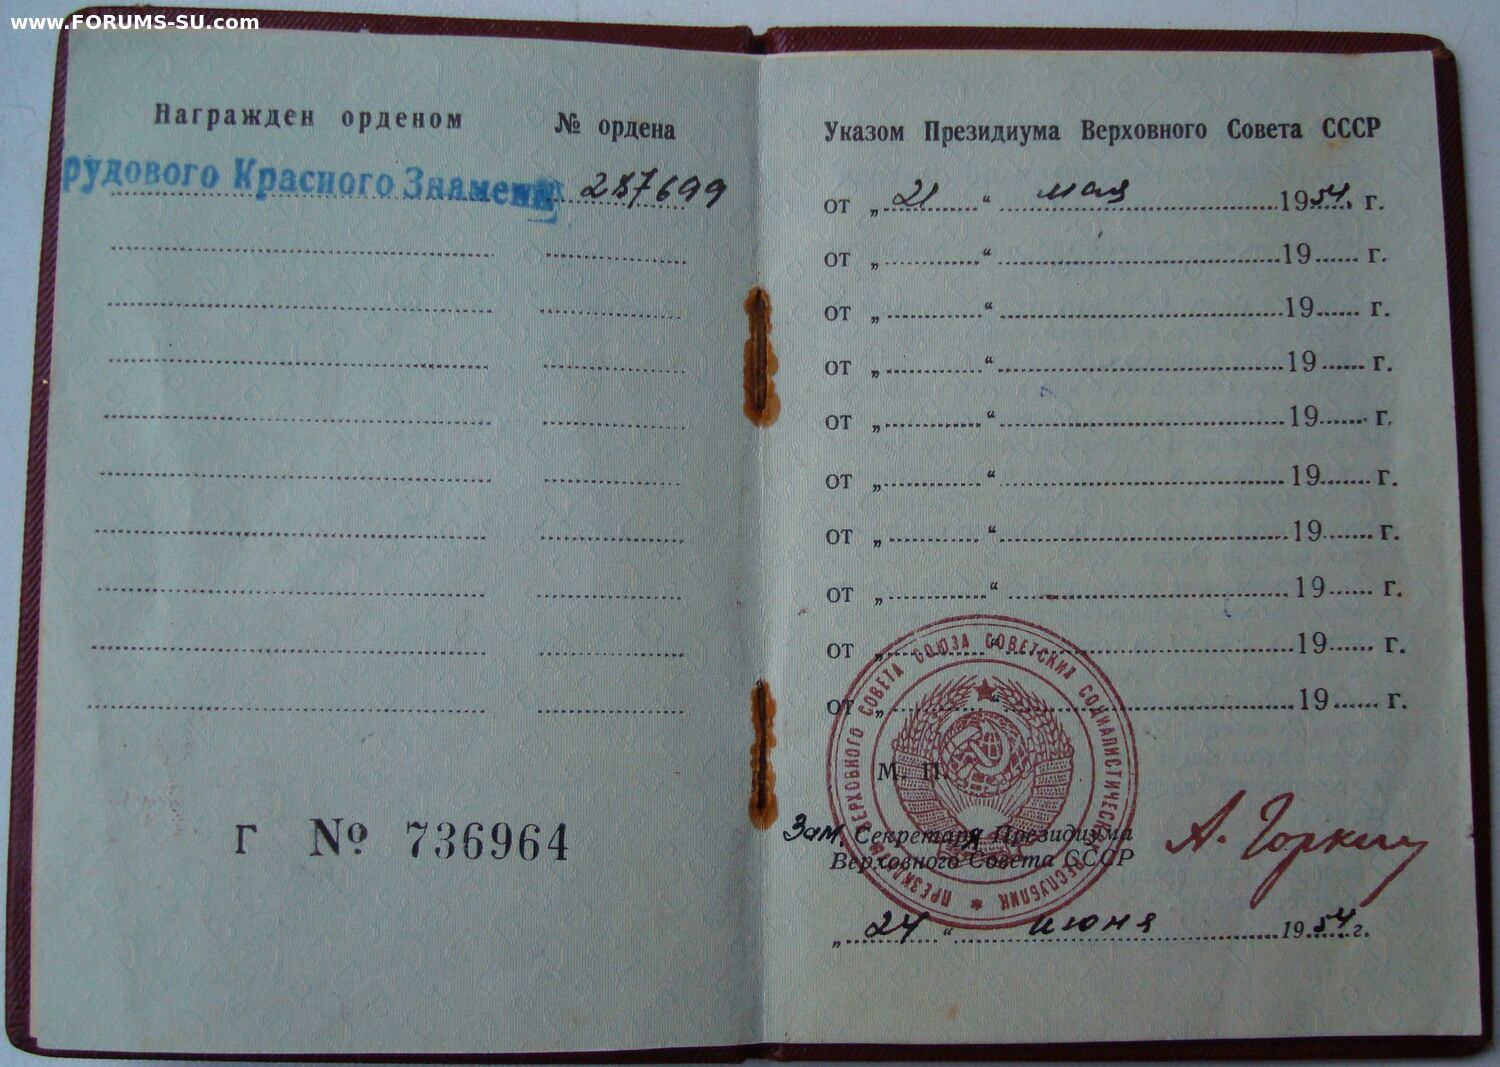 www.FORUMS-SU.com
Награжден орденом № ордена
рудового Красного Знамени 287699
Г № 736964
Указом Президиума Верховного Совета СССР
от „ 21 “ мая 1954 г.
от „ “ 19 г.
от „ “ 19 г.
от „ “ 19 г.
от „ “ 19 г.
от „ “ 19 г.
от „ “ 19 г.
от „ “ 19 г.
от „ “ 19 г.
от „ “ 19 г.
ПРЕЗИДИУМ ВЕРХОВНОГО СОВЕТА СОЮЗА СОВЕТСКИХ СОЦИАЛИСТИЧЕСКИХ РЕСПУБЛИК
М. П.
Зам. Секретаря Президиума
Верховного Совета СССР
А. Горкин
„ 24 “ июня 1954 г.